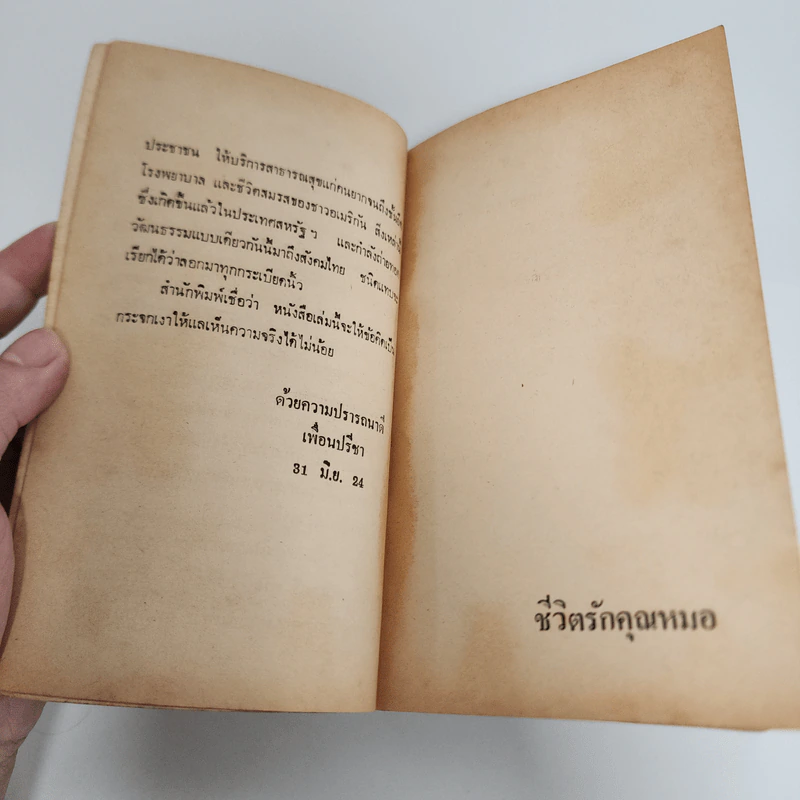 ประชาชน ให้บริการสาธารณสุขแก่คนยากจนถึงขั้น
โรงพยาบาล และชีวิตสมรสของชาวอเมริกัน สิ่งเหล่านี้
ซึ่งเกิดขึ้นแล้วในประเทศสหรัฐ ฯ และกำลังถ่ายทอด
วัฒนธรรมแบบเดียวกันนี้มาถึงสังคมไทย ชนิดแทบจะ
เรียกได้ว่าลอกมาทุกกระเบียดนิ้ว
สำนักพิมพ์เชื่อว่า หนังสือเล่มนี้จะให้ข้อคิดเป็น
กระจกเงาให้แลเห็นความจริงได้ไม่น้อย
ด้วยความปรารถนาดี
เพื่อนปรีชา
31 มิ.ย. 24
ชีวิตรักคุณหมอ